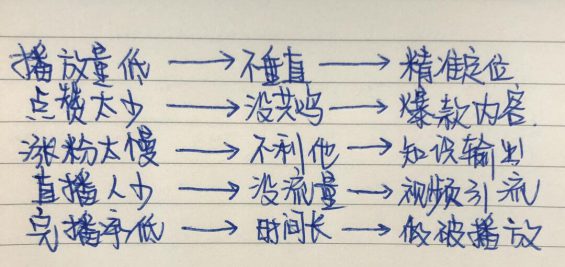 播放量低→不垂直→精准定位
点赞太少→没共鸣→爆款内容.
涨粉太慢→不利他→知识输出
直播人少→没流量→视频引流
完播率低→时间长→做被播放